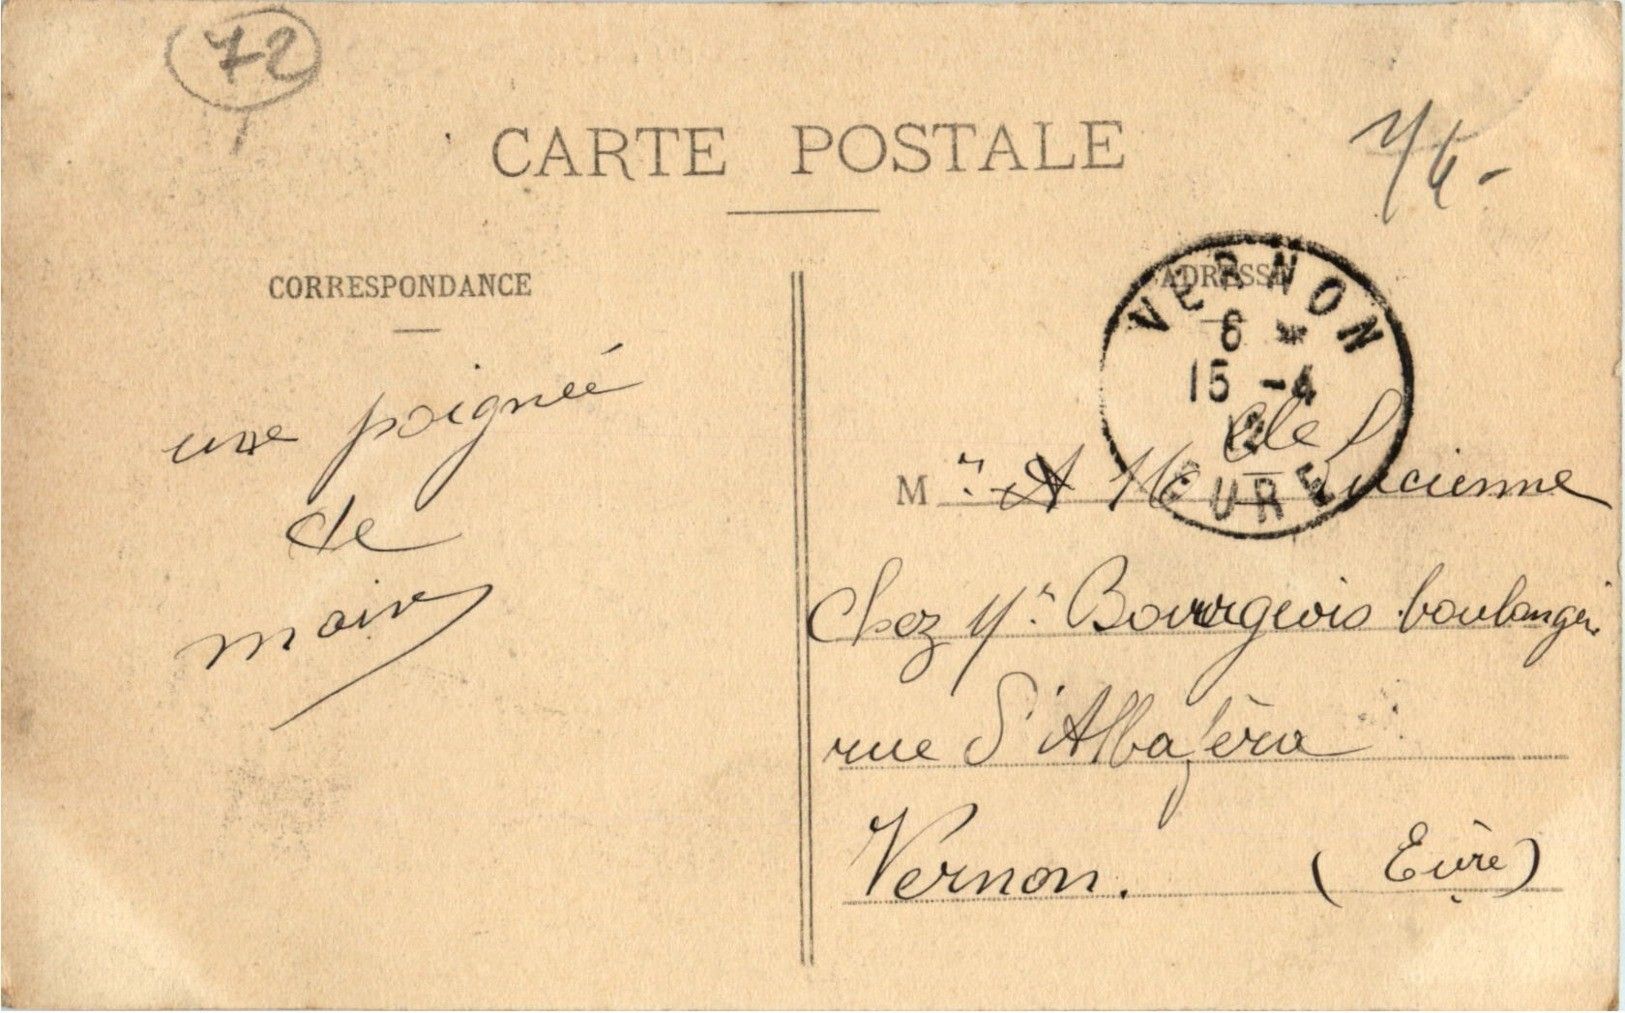 72
CARTE POSTALE
CORRESPONDANCE
ADRESSE
VERNON
6 *
15 -4
12
EURE
une poignée
de
main
Mr. A Melle Lucienne
Chez Mr. Bourgeois boulanger
rue d'Albuféra
Vernon. (Eure)